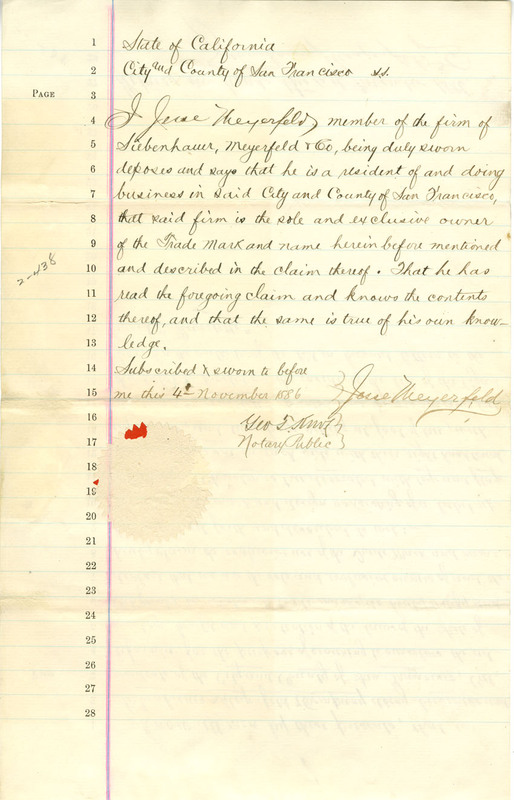 1 State of California
2 City and County of San Francisco s.s.
PAGE 3
4 I Jesse Meyerfeld, member of the firm of
5 Siebenhauer, Meyerfeld & Co, being duly sworn
6 deposes and says that he is a resident of and doing
7 business in said City and County of San Francisco,
8 that said firm is the sole and exclusive owner
9 of the Trade Mark and name herein before mentioned
10 and described in the claim thereof. That he has
11 read the foregoing claim and knows the contents
12 thereof, and that the same is true of his own know-
13 ledge.
14 Subscribed & sworn to before
15 me this 4th November 1886 } Jesse Meyerfeld
16 Geo T. Knox }
17 Notary Public }
18
19
20
21
22
23
24
25
26
27
28
2-438